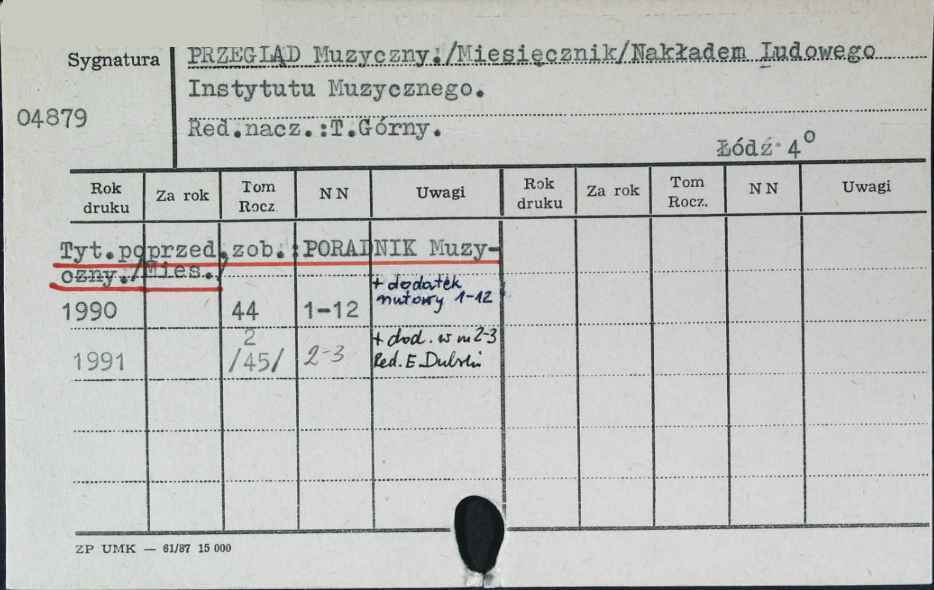 Sygnatura
04879
PRZEGLĄD Muzyczny./Miesięcznik/Nakładem Ludowego
Instytutu Muzycznego.
Red.nacz.:T.Górny.
Łódź 4°
Rok druku Za rok Tom Rocz. N N Uwagi Rok druku Za rok Tom Rocz. N N Uwagi
Tyt.poprzed.zob.:PORADNIK Muzy-
czny./Mies./
+ dodatek
1990 44 1-12 nutowy 1-12
2 + dod. w nr 2-3
1991 /45/ 2-3 Red. E.
ZP UMK — 61/87 15 000